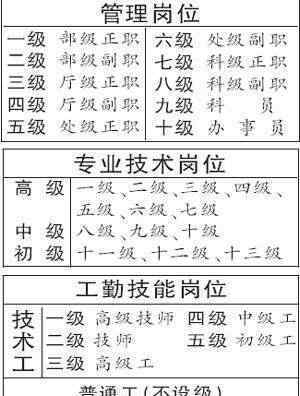 管理岗位
一级 部级正职 六级 处级副职
二级 部级副职 七级 科级正职
三级 厅级正职 八级 科级副职
四级 厅级副职 九级 科 员
五级 处级正职 十级 办事员
专业技术岗位
高 级 一级、二级、三级、四级、
五级、六级、七级
中 级 八级、九级、十级
初 级 十一级、十二级、十三级
工勤技能岗位
技 一级 高级技师 四级 中级工
术 二级 技师 五级 初级工
工 三级 高级工
普通工(不设级)